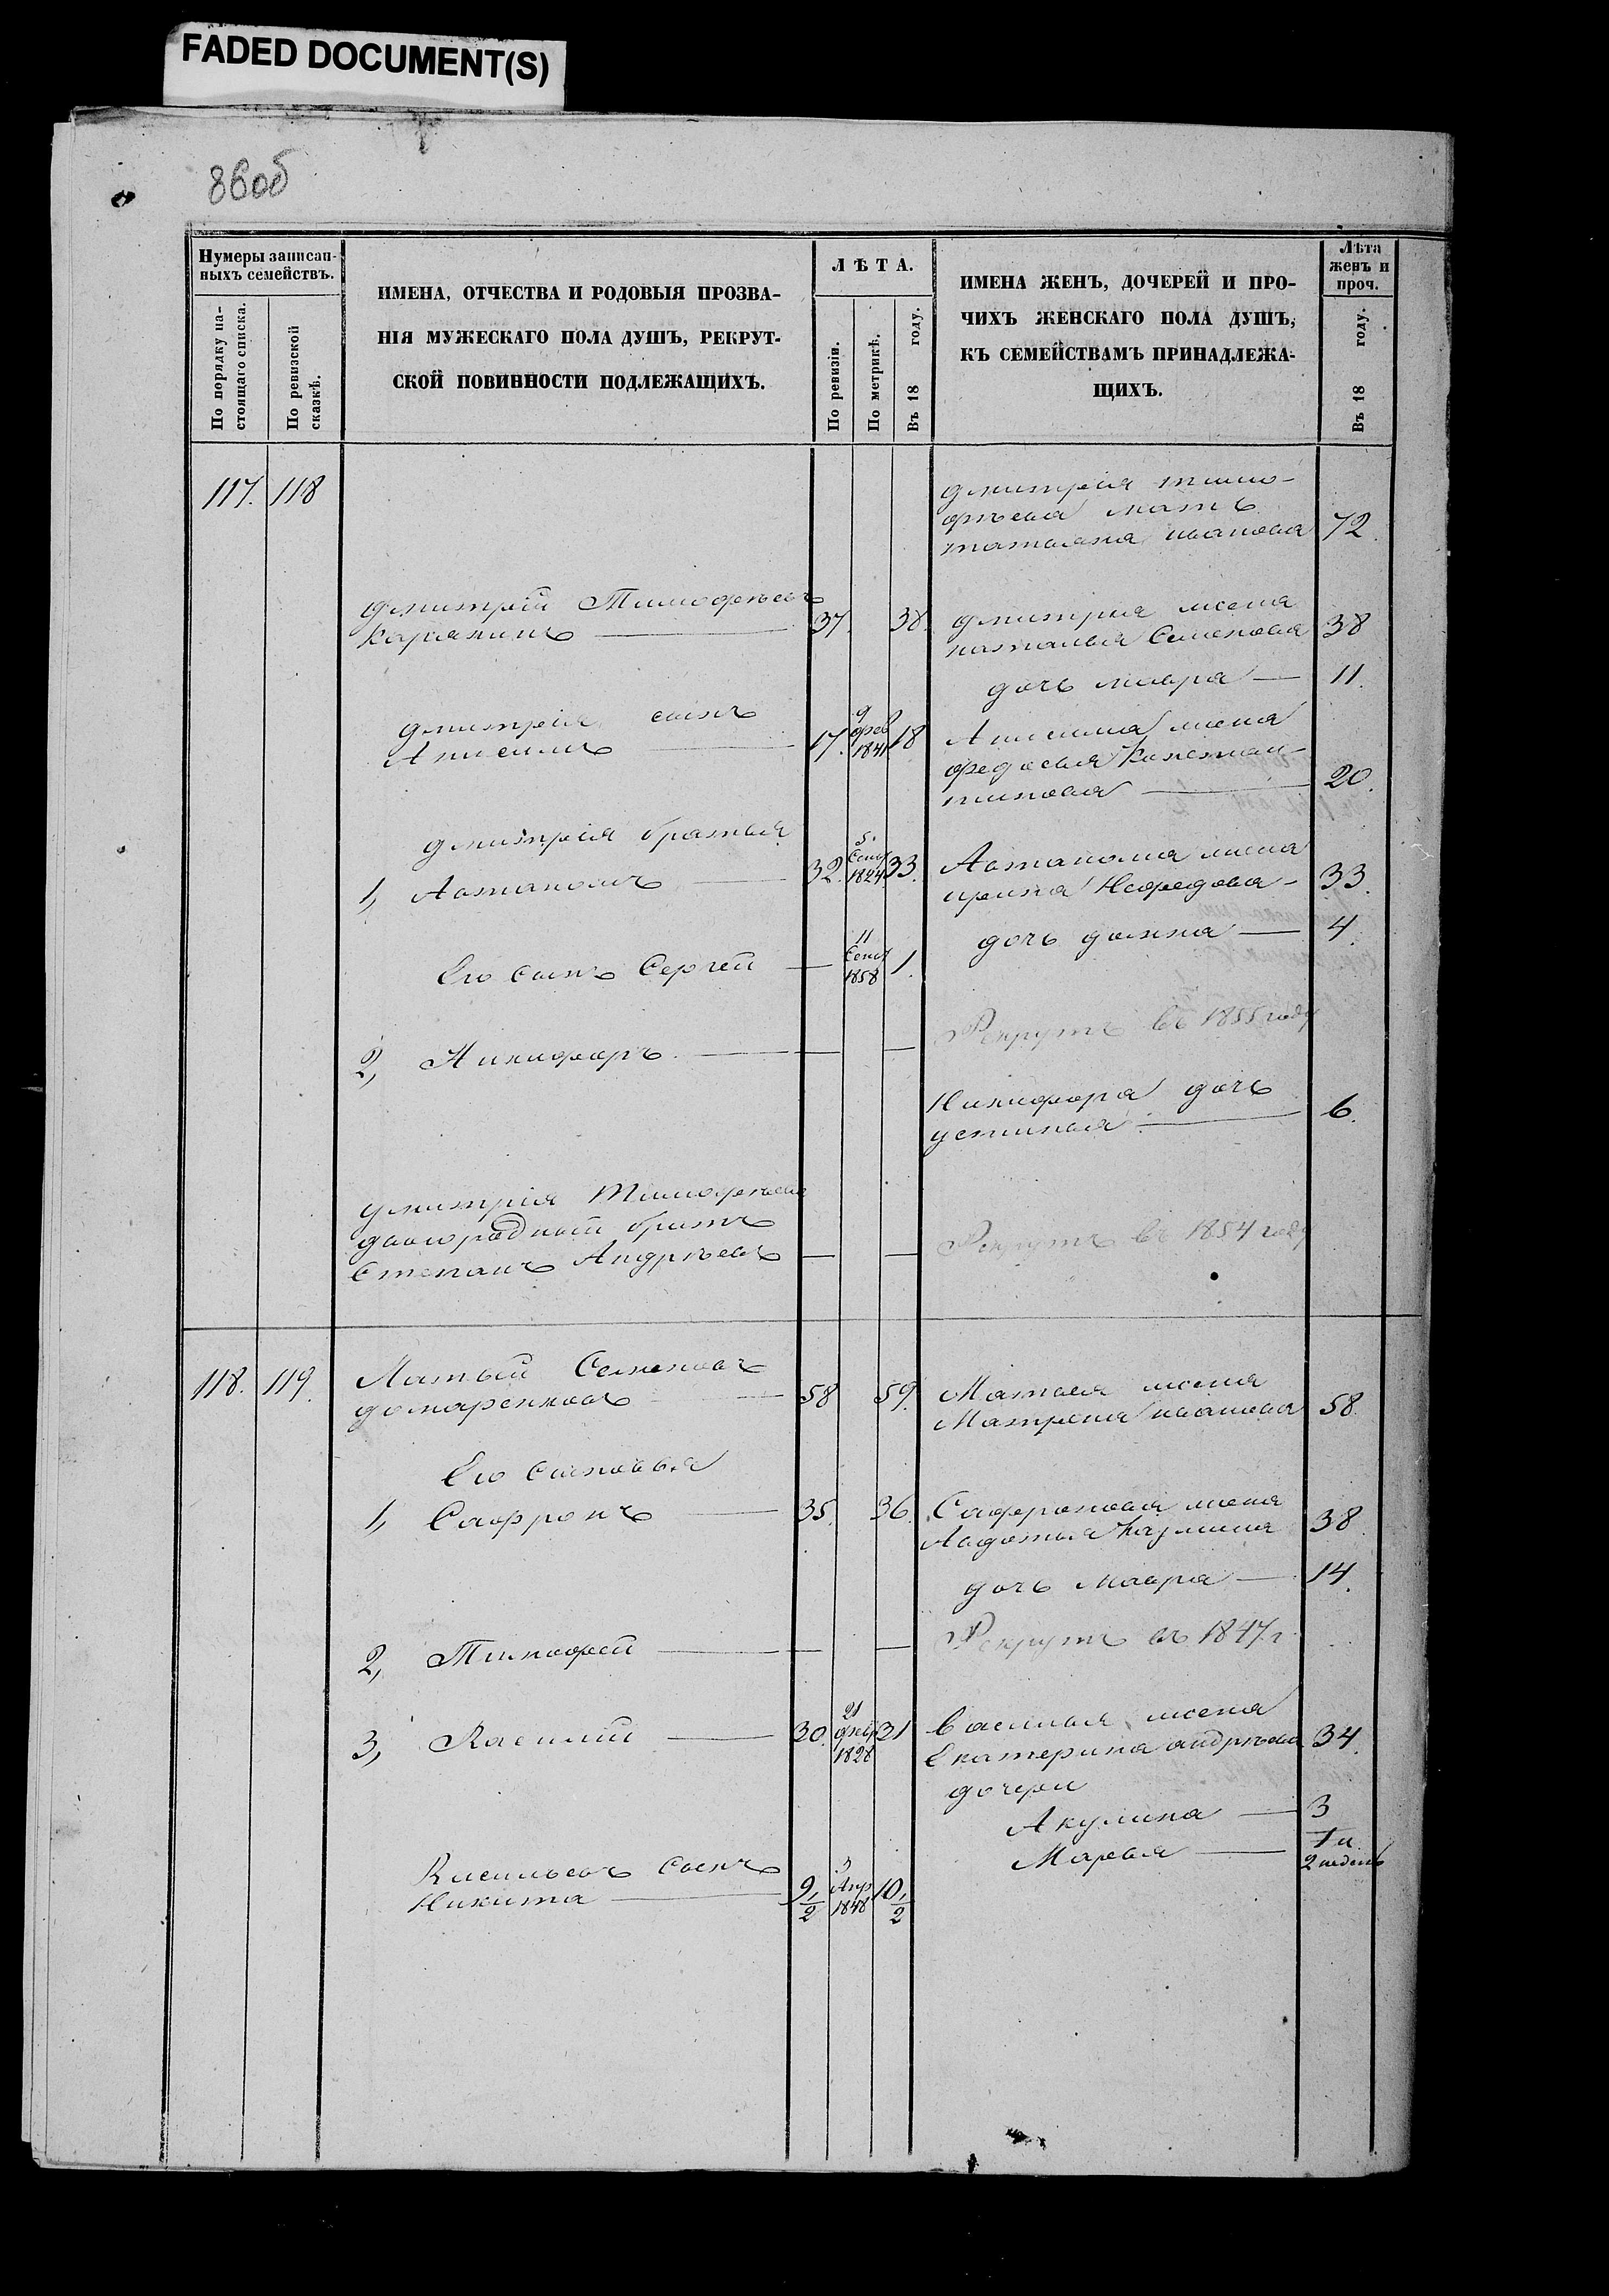 FADED DOCUMENT(S)
86об
Нумеры записан-
ныхъ семействъ.
По порядку на-
стоящаго списка.
По ревизской
сказкѣ.
ИМЕНА, ОТЧЕСТВА И РОДОВЫЯ ПРОЗВА-
НІЯ МУЖЕСКАГО ПОЛА ДУШЪ, РЕКРУТ-
СКОЙ ПОВИННОСТИ ПОДЛЕЖАЩИХЪ.
ЛѢТА.
По ревизіи.
По метрикѣ.
Въ 18 году.
ИМЕНА ЖЕНЪ, ДОЧЕРЕЙ И ПРО-
ЧИХЪ ЖЕНСКАГО ПОЛА ДУШЪ,
КЪ СЕМЕЙСТВАМЪ ПРИНАДЛЕЖА-
ЩИХЪ.
Лѣта
женъ и
проч.
Въ 18 году.
117. 118
Дмитрія Тимо-
фѣева мать
татьяна иванова 72.
Дмитрій Тимофѣевъ
37. 38.
Дмитрія жена
наталья Семенова 38
дочь мавра — 11.
Дмитрія сынъ
Анисимъ — 17. 9 фев 1841 18
Анисима жена
федосья Констан-
тинова — 20.
Дмитрія братья
1, Автаномъ — 32. 5. Сент 1824 33.
Автанома жена
ирина Нефедова — 33.
дочь домна — 4.
Его сынъ Сергей — 11 Сент 1858 1.
2, Никифоръ — — —
Рекрутъ въ 1855 году
Никифора дочь
устинья — 6.
Дмитрія Тимофѣева
двоюродный братъ
Степанъ Андрѣевъ — —
Рекрутъ въ 1854 году
118. 119.
Матвѣй Семеновъ
58 59.
Матвѣя жена
Матрена иванова 58.
Его сыновья
1, Сафронъ — 35. 36.
Сафронова жена
Авдотья Кузмина 38.
дочь Мавра — 14.
2, Тимофей — — —
Рекрутъ въ 1847 г
3, Василий — 30. 21 декр 1828 31
Василья жена
Екатерина андрѣева 34.
дочери
Акулина — 3
Марья — 1 и
2 недель
Васильевъ сынъ
Никита — 9 1/2 3 Апр 1848 10 1/2